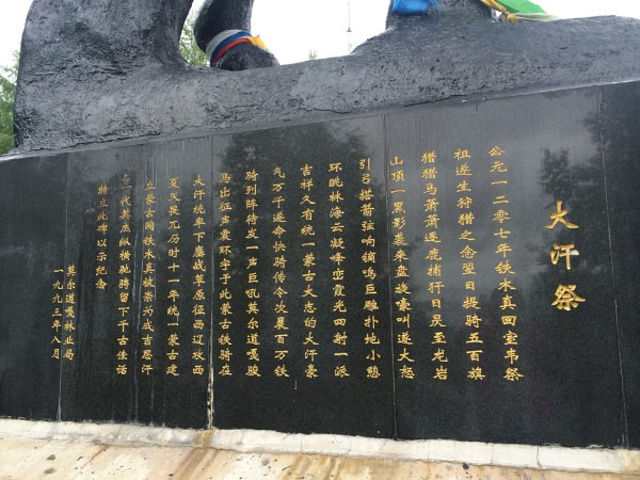 大汗祭
公元一二零七年铁木真回室韦祭
祖遂生狩猎之念翌日提骑五百旗
猎猎马萧萧逐鹿捕犴日昃至龙岩
山顶一黑影袭来盘旋嚎叫遂大怒
引弓搭箭弦响镝鸣巨雕扑地小憩
环眺林海云凝峰峦霞光四射一派
吉祥久有统一蒙古大志的大汗豪
气万千遂命快骑传令次晨百万铁
骑列阵待发一声巨吼莫尔道嘎骏
马出征声震环宇于此蒙古铁骑在
大汗统率下鏖战草原征西辽攻西
夏灭金兀历时十一年统一蒙古建
立蒙古国铁木真被崇为成吉思汗
一代英杰纵横驰骋留下千古佳话
特立此碑以示纪念
莫尔道嘎林业局
一九九三年八月